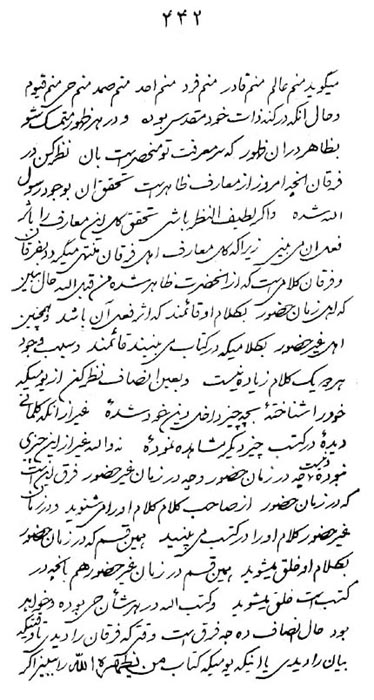 ۴۴۲
میگوید منم عالم منم قادر منم فرد منم احد منم صمد منم حی منم قیوم
و حال آنکه در کنه ذات خود مقدس بوده و در هر ظهور متمسک شو
بظاهر در ان ظهور که معرفت تو منحصر است بان نظر کن در
فرقان انچه امروز از معارف ظاهر است تحقق ان بوجود رسول
الله شده و اگر لطیف النظر باشی تحقق کل این معارف را باثر
فعل ان می بینی زیرا که کل معارف اهل فرقان منتهی میگردد بفرقان
و فرقان کلامی است که از انحضرت ظاهر شده من قبل الله حال ببین
که اهل زمان حضور بکلام او قائمند که اثر فعل آن باشد و همچنین
اهل غیر حضور بکلامیکه در کتاب می بینند قائمند و سبب وجود
هر یک کلام زیاده نیست و بعین انصاف نظر کن از یومیکه
خود را شناختهٔ بچه چیز داخل دین خود شدهٔ غیر از انکه کلماتی
دیدهٔ در کتب چیز دیگر مشاهده نمودهٔ نه والله غیر از این چیزی
نبوده و نیست چه در زمان حضور و چه در زمان غیر حضور فرق این است
که در زمان حضور از صاحب کلام کلام او را میشنوید و در زمان
غیر حضور کلام او را در کتب می بینید همین قسم که در زمان حضور
بکلام او خلق میشوید همین قسم در زمان غیر حضور هم بانچه در
کتب است خلق میشوید و کتب الله در هر شأن حی بوده و خواهد
بود حال انصاف ده چه فرق است وقتی که فرقان را دیدی تا وقتیکه
بیان را دیدی یا انکه یومیکه کتاب من یظهره الله را ببینی اگر